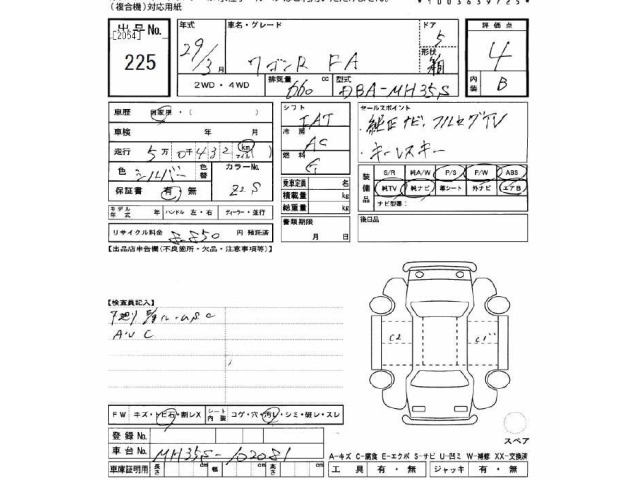 (複合機)対応用紙
出品No.
[2054]
225
年式 車名・グレード ドア 評価点
29/3月 ワゴンR FA 5 4
形状 箱
2WD・4WD 排気量 660 cc 型式 DBA-MH35S 内装 B
車歴 自家用・( )
車検 年 月
走行 5万0千432 km マイル
色 シルバー 色替 カラーNo. Z2S
保証書 有・無
モデル年式 年 ハンドル 左・右 ディーラー・並行
リサイクル料金 円 預託済
シフト
IAT
冷房
AC
燃料
G
乗車定員 名
積載量 kg
総重量 kg
書類期限
月 日
セールスポイント
・純正ナビ・フルセグTV
・キーレスキー
装備品
S/R 純A/W P/S P/W ABS
純TV 純ナビ 革シート 外ナビ エアB
ナビ型番:
後日品
【出品店申告欄(不良箇所・欠品・注意事項等)】
【検査員記入】
AUC
C2 C1
FW キズ・トビ石・割レX シート内装 コゲ・穴・汚レ・シミ・破レ・スレ
スペア
登録No.
車台No. MH35S-102081
A-キズ C-腐食 E-エクボ S-サビ U-凹ミ W-補修 XX-交換済
車庫証明用 長さ cm 幅 cm 高さ cm 工具 有・無 ジャッキ 有・無